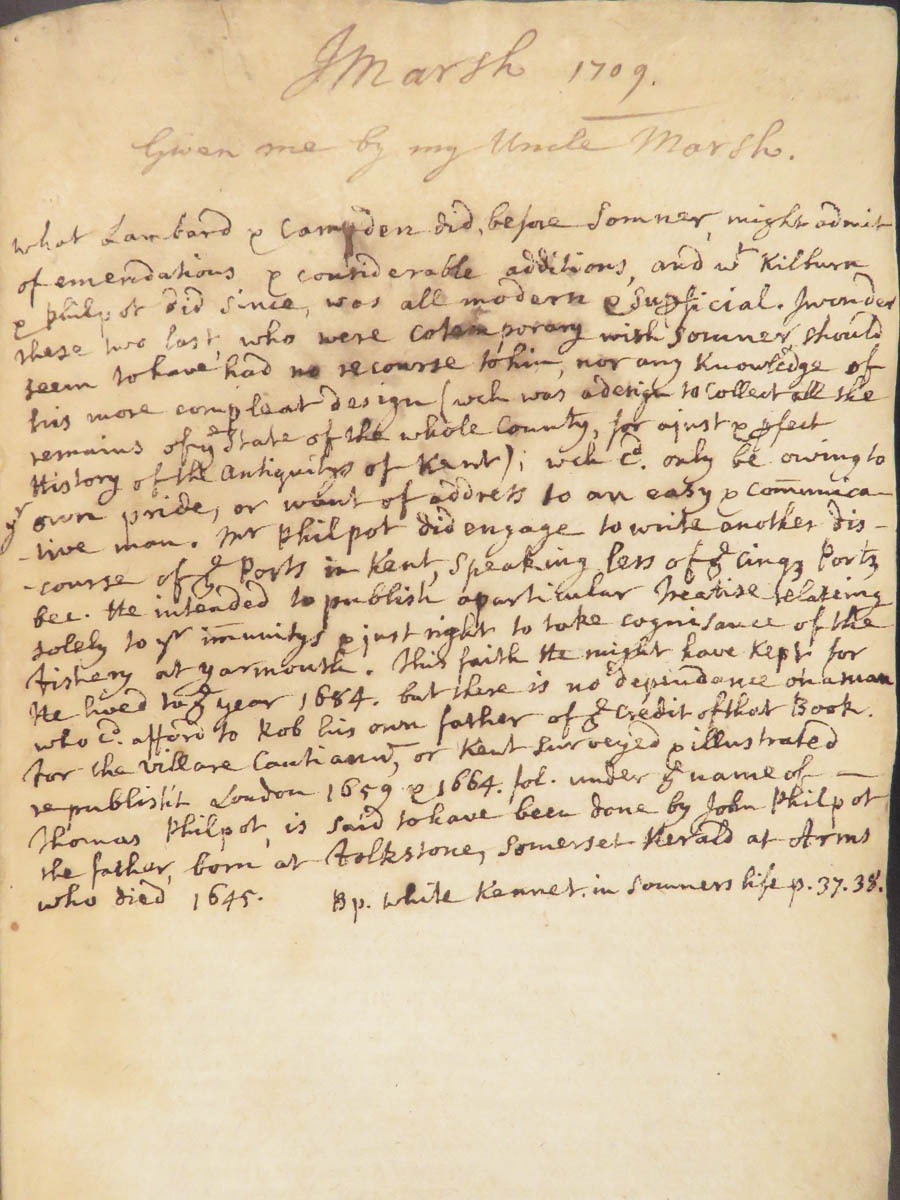 J Marsh 1709.
Given me by my Uncle Marsh.
what Lambard & Campden did, before Somner, might admit
of emendations & considerable additions, and wt Kilburn
& Philpot did since, was all modern & Supficial. I wonder
these two last, who were cotemporary with Somner, should
seem to have had no recourse to him, nor any Knowledge of
his more compleat design (wch was a design to Collect all the
remains of ye State of the whole County, for a just & pfect
History of the Antiquitys of Kent); wch cd. only be owing to
yr own pride, or want of address to an easy & communica-
-tive man. Mr Philpot did engage to write another dis-
-course of ye Ports in Kent, Speaking less of ye Cinq3 Ports
bec. He intended to publish a particular Treatise relateing
solely to yr immunitys & just right to take cognisance of the
Fishery at yarmouth. This faith He might have Kept for
He lived to ye year 1684. but there is no dependance on a man
who cd. afford to Rob his own father of ye Credit of that Book.
For the Villare Cantianum, or Kent Surveyed & illustrated
republish't London 1659 & 1664. fol. under ye name of —
Thomas Philpot, is said to have been done by John Philpot
the father, born at Folkstone, Somerset Herald at Arms
who died 1645. Bp. White Kennet. in Somners life p. 37. 38.